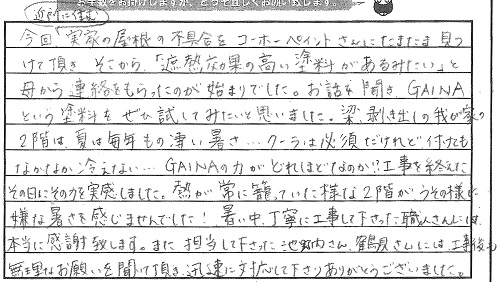 お手数をお掛けしますが、どうぞ宜しくお願い致します。
近所に住む
今回、実家の屋根の不具合をコーホーペイントさんにたまたま見つ
けて頂き、そこから、「遮熱効果の高い塗料があるみたい」と
母から連絡をもらったのが始まりでした。お話を聞き、GAINA
という塗料をぜひ試してみたいと思いました。梁剥き出しの我が家の
2階は、夏は毎年もの凄い暑さ…クーラーは必須だけれど付けても
なかなか冷えない…GAINAの力がどれほどなのか!?工事を終えた
その日にその力を実感しました。熱が常に籠っていた様な2階がうその様に
嫌な暑さを感じませんでした！暑い中、丁寧に工事して下さった職人さんには、
本当に感謝致します。また担当して下さった池野内さん、鶴見さんには、工事後も
無理なお願いを聞いて頂き、迅速に対応して下さりありがとうございました。